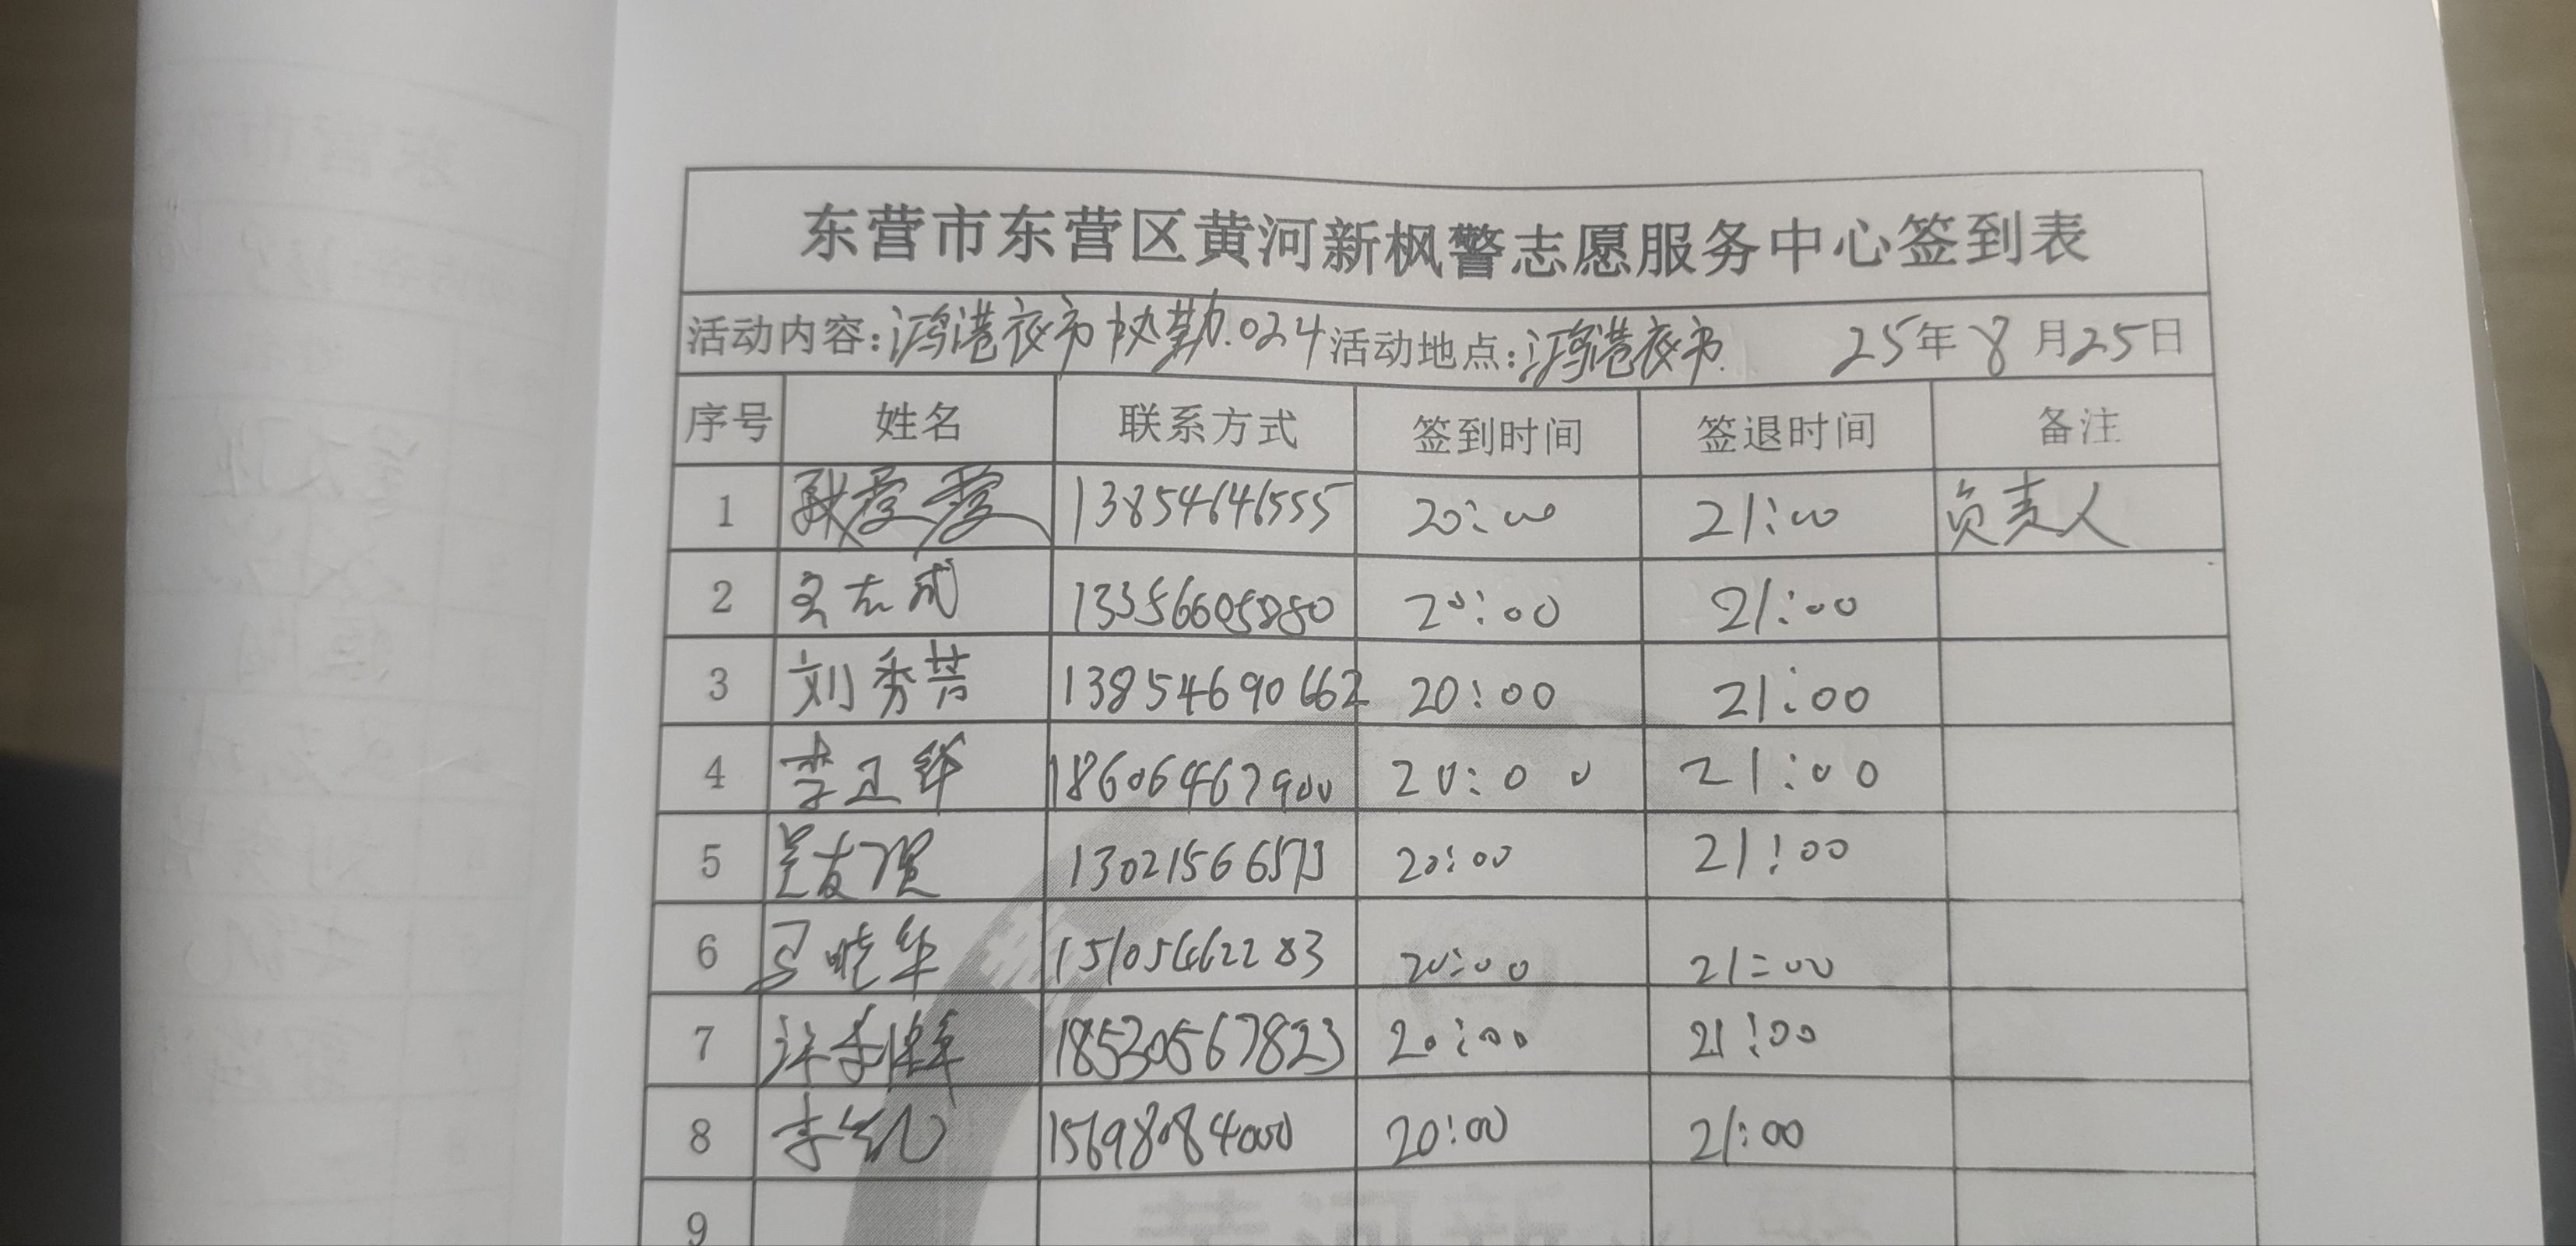 东营市东营区黄河新枫警志愿服务中心签到表
活动内容:鸿港夜市协勤.024 活动地点:鸿港夜市. 25年8月25日
序号 姓名 联系方式 签到时间 签退时间 备注
1 13854646555 20:00 21:00 负责人
2 13356605880 20:00 21:00
3 刘秀芳 13854690662 20:00 21:00
4 李正华 18606467900 20:00 21:00
5 吴友俊 13021566573 20:00 21:00
6 马晓华 15105462283 20:00 21:00
7 许 18530567823 20:00 21:00
8 李 15698084000 20:00 21:00
9